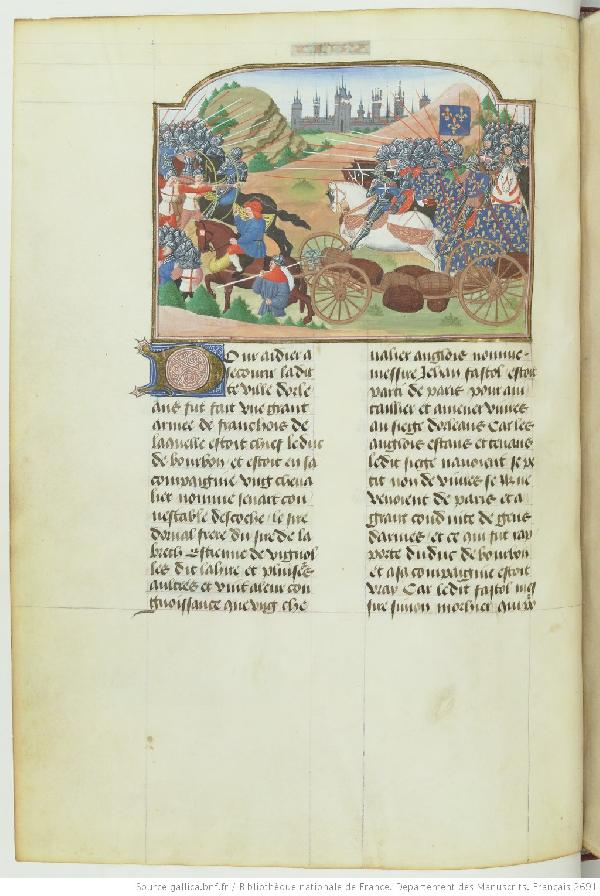 Pour aidier a
secourir ladit
te ville dorle
ans fut fait vne grant
armee de franchois de
laquelle estoit chief le duc
de bourbon et estoit en sa
compaignie vng cheua
lier nomme ienart con
nestable descoche le sire
dorual frere du sire de la
breth Estienne de vignol
les dit lahire et pluises
aultres et vint a leur con
gnoissance que vng che
ualier anglois nomme
messire Jehan fastol estoit
parti de paris pour aui
taillier et amener viures
au siege dorleans Car les
anglois estans et tenans
ledit siege nauoient se pe
tit non de viures se ilz ne
venoient de paris et a
grant conduite de gens
darmes et ce qui fut rap
porte du duc de bourbon
et a sa compaignie estoit
vray Car ledit fastol mes
sire simon morhier
Source gallica.bnf.fr / Bibliothèque nationale de France. Département des Manuscrits. Français 2691